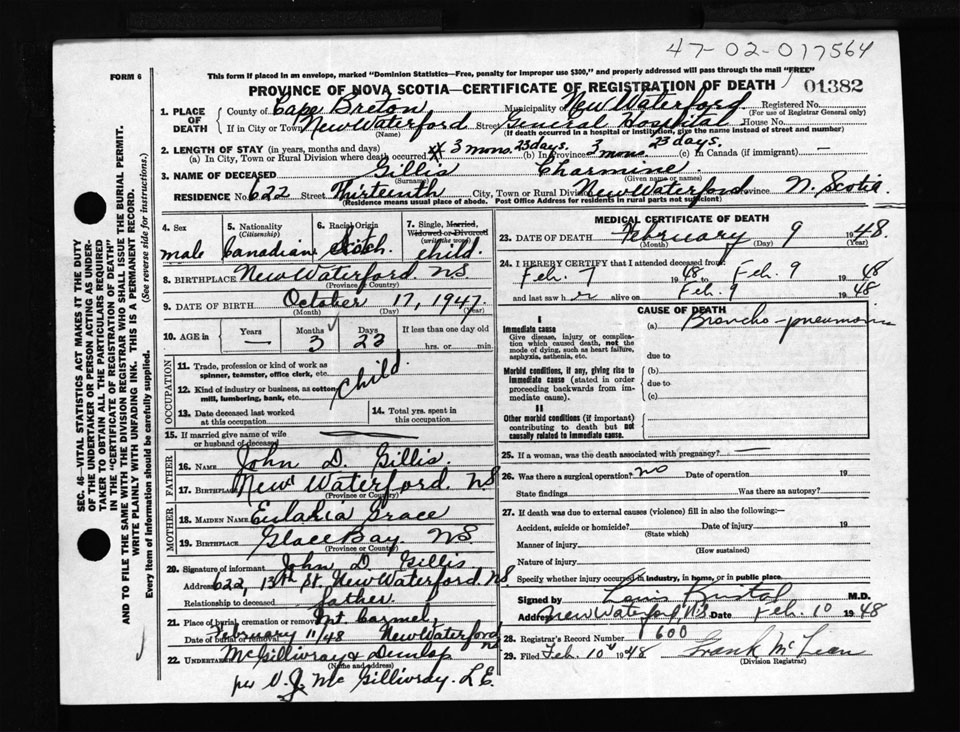 47-02-017564
FORM 6
This form if placed in an envelope, marked "Dominion Statistics—Free, penalty for improper use $300," and properly addressed will pass through the mail "FREE"
PROVINCE OF NOVA SCOTIA—CERTIFICATE OF REGISTRATION OF DEATH 01382
1. PLACE OF DEATH
County of Cape Breton Municipality of New Waterford Registered No.
(For use of Registrar General only)
If in City or Town New Waterford Street General Hospital House No.
(Name) (If death occurred in a hospital or institution, give the name instead of street and number)
2. LENGTH OF STAY (in years, months and days)
(a) In City, Town or Rural Division where death occurred 3 mons. 23 days. (b) In Province 3 mons. 23 days. (c) In Canada (if immigrant) —
3. NAME OF DECEASED Gillis Charmine
(Surname) (Given name or names)
RESIDENCE No. 622 Street Thirteenth City, Town or Rural Division New Waterford Province N. Scotia
(Residence means usual place of abode. Post Office Address for residents in rural parts not sufficient)
4. Sex male
5. Nationality (Citizenship) Canadian
6. Racial Origin Scotch.
7. Single, Married, Widowed or Divorced (write the word) Child.
8. BIRTHPLACE New Waterford N.S
(Province or Country)
9. DATE OF BIRTH October 17, 1947.
(Month) (Day) (Year)
10. AGE in Years Months Days If less than one day old
— 3 23 hrs. or min.
OCCUPATION
11. Trade, profession or kind of work as spinner, teamster, office clerk, etc.
12. Kind of industry or business, as cotton mill, lumbering, bank, etc.
Child.
13. Date deceased last worked at this occupation
14. Total yrs. spent in this occupation
15. If married give name of wife or husband of deceased
FATHER
16. NAME John D. Gillis.
17. BIRTHPLACE New Waterford. N.S
(Province or Country)
MOTHER
18. MAIDEN NAME Eulalia Grace
19. BIRTHPLACE Glace Bay. N.S.
(Province or Country)
20. Signature of informant John D. Gillis
Address 622, 13th St. New Waterford N.S
Relationship to deceased father.
21. Place of burial, cremation or removal Mt Carmel,
Date of burial or removal February 11/48 New Waterford NS
22. UNDERTAKER McGillivray & Dunlop
(Name and address)
per V. J. McGillivray. L.E.
MEDICAL CERTIFICATE OF DEATH
23. DATE OF DEATH February 9 1948.
(Month) (Day) (Year)
24. I HEREBY CERTIFY that I attended deceased from
Feb. 7 1948 to Feb. 9 1948
and last saw h er alive on Feb. 9 1948
CAUSE OF DEATH
I
Immediate cause
Give disease, injury or complication which caused death, not the mode of dying, such as heart failure, asphyxia, asthenia, etc.
(a) Broncho-pneumonia
due to
Morbid conditions, if any, giving rise to immediate cause (stated in order proceeding backwards from immediate cause).
(b)
due to
(c)
II
Other morbid conditions (if important) contributing to death but not causally related to immediate cause.
25. If a woman, was the death associated with pregnancy? —
26. Was there a surgical operation? no Date of operation 19
State findings Was there an autopsy?
27. If death was due to external causes (violence) fill in also the following:—
Accident, suicide or homicide? Date of injury 19
(State which)
Manner of injury
(How sustained)
Nature of injury
Specify whether injury occurred in industry, in home, or in public place.
Signed by Louis Kristal M.D.
Address New Waterford, N.S. Date Feb. 10 1948
28. Registrar's Record Number 600
29. Filed Feb. 10 1948 Frank McLean
(Division Registrar)
SEC. 46—VITAL STATISTICS ACT MAKES IT THE DUTY
OF THE UNDERTAKER OR PERSON ACTING AS UNDER-
TAKER TO OBTAIN ALL THE PARTICULARS REQUIRED
IN THE "CERTIFICATE OF REGISTRATION OF DEATH"
AND TO FILE THE SAME WITH THE DIVISION REGISTRAR WHO SHALL ISSUE THE BURIAL PERMIT.
WRITE PLAINLY WITH UNFADING INK. THIS IS A PERMANENT RECORD.
Every item of information should be carefully supplied. (See reverse side for instructions.)